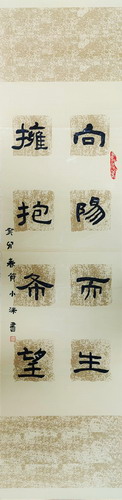 向陽而生
擁抱希望
癸卯